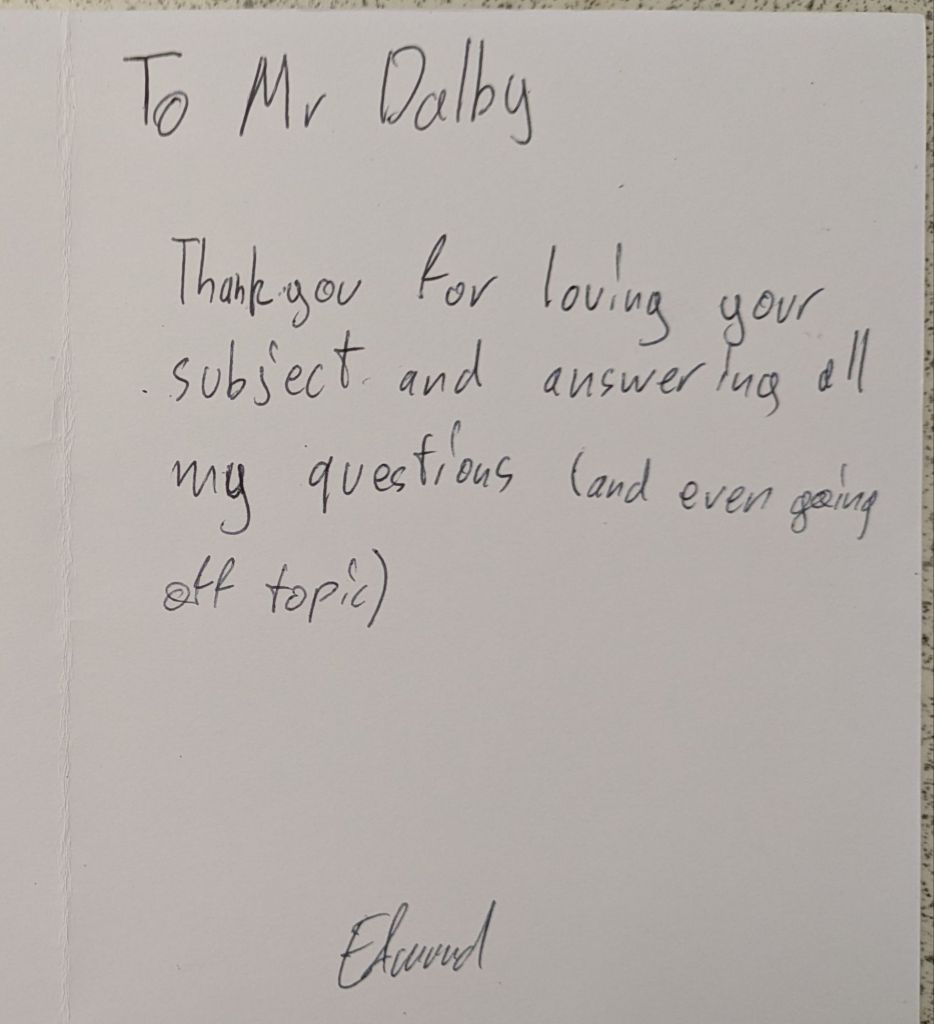 To Mr Dalby
Thank you for loving your
subject and answering all
my questions (and even going
off topic)